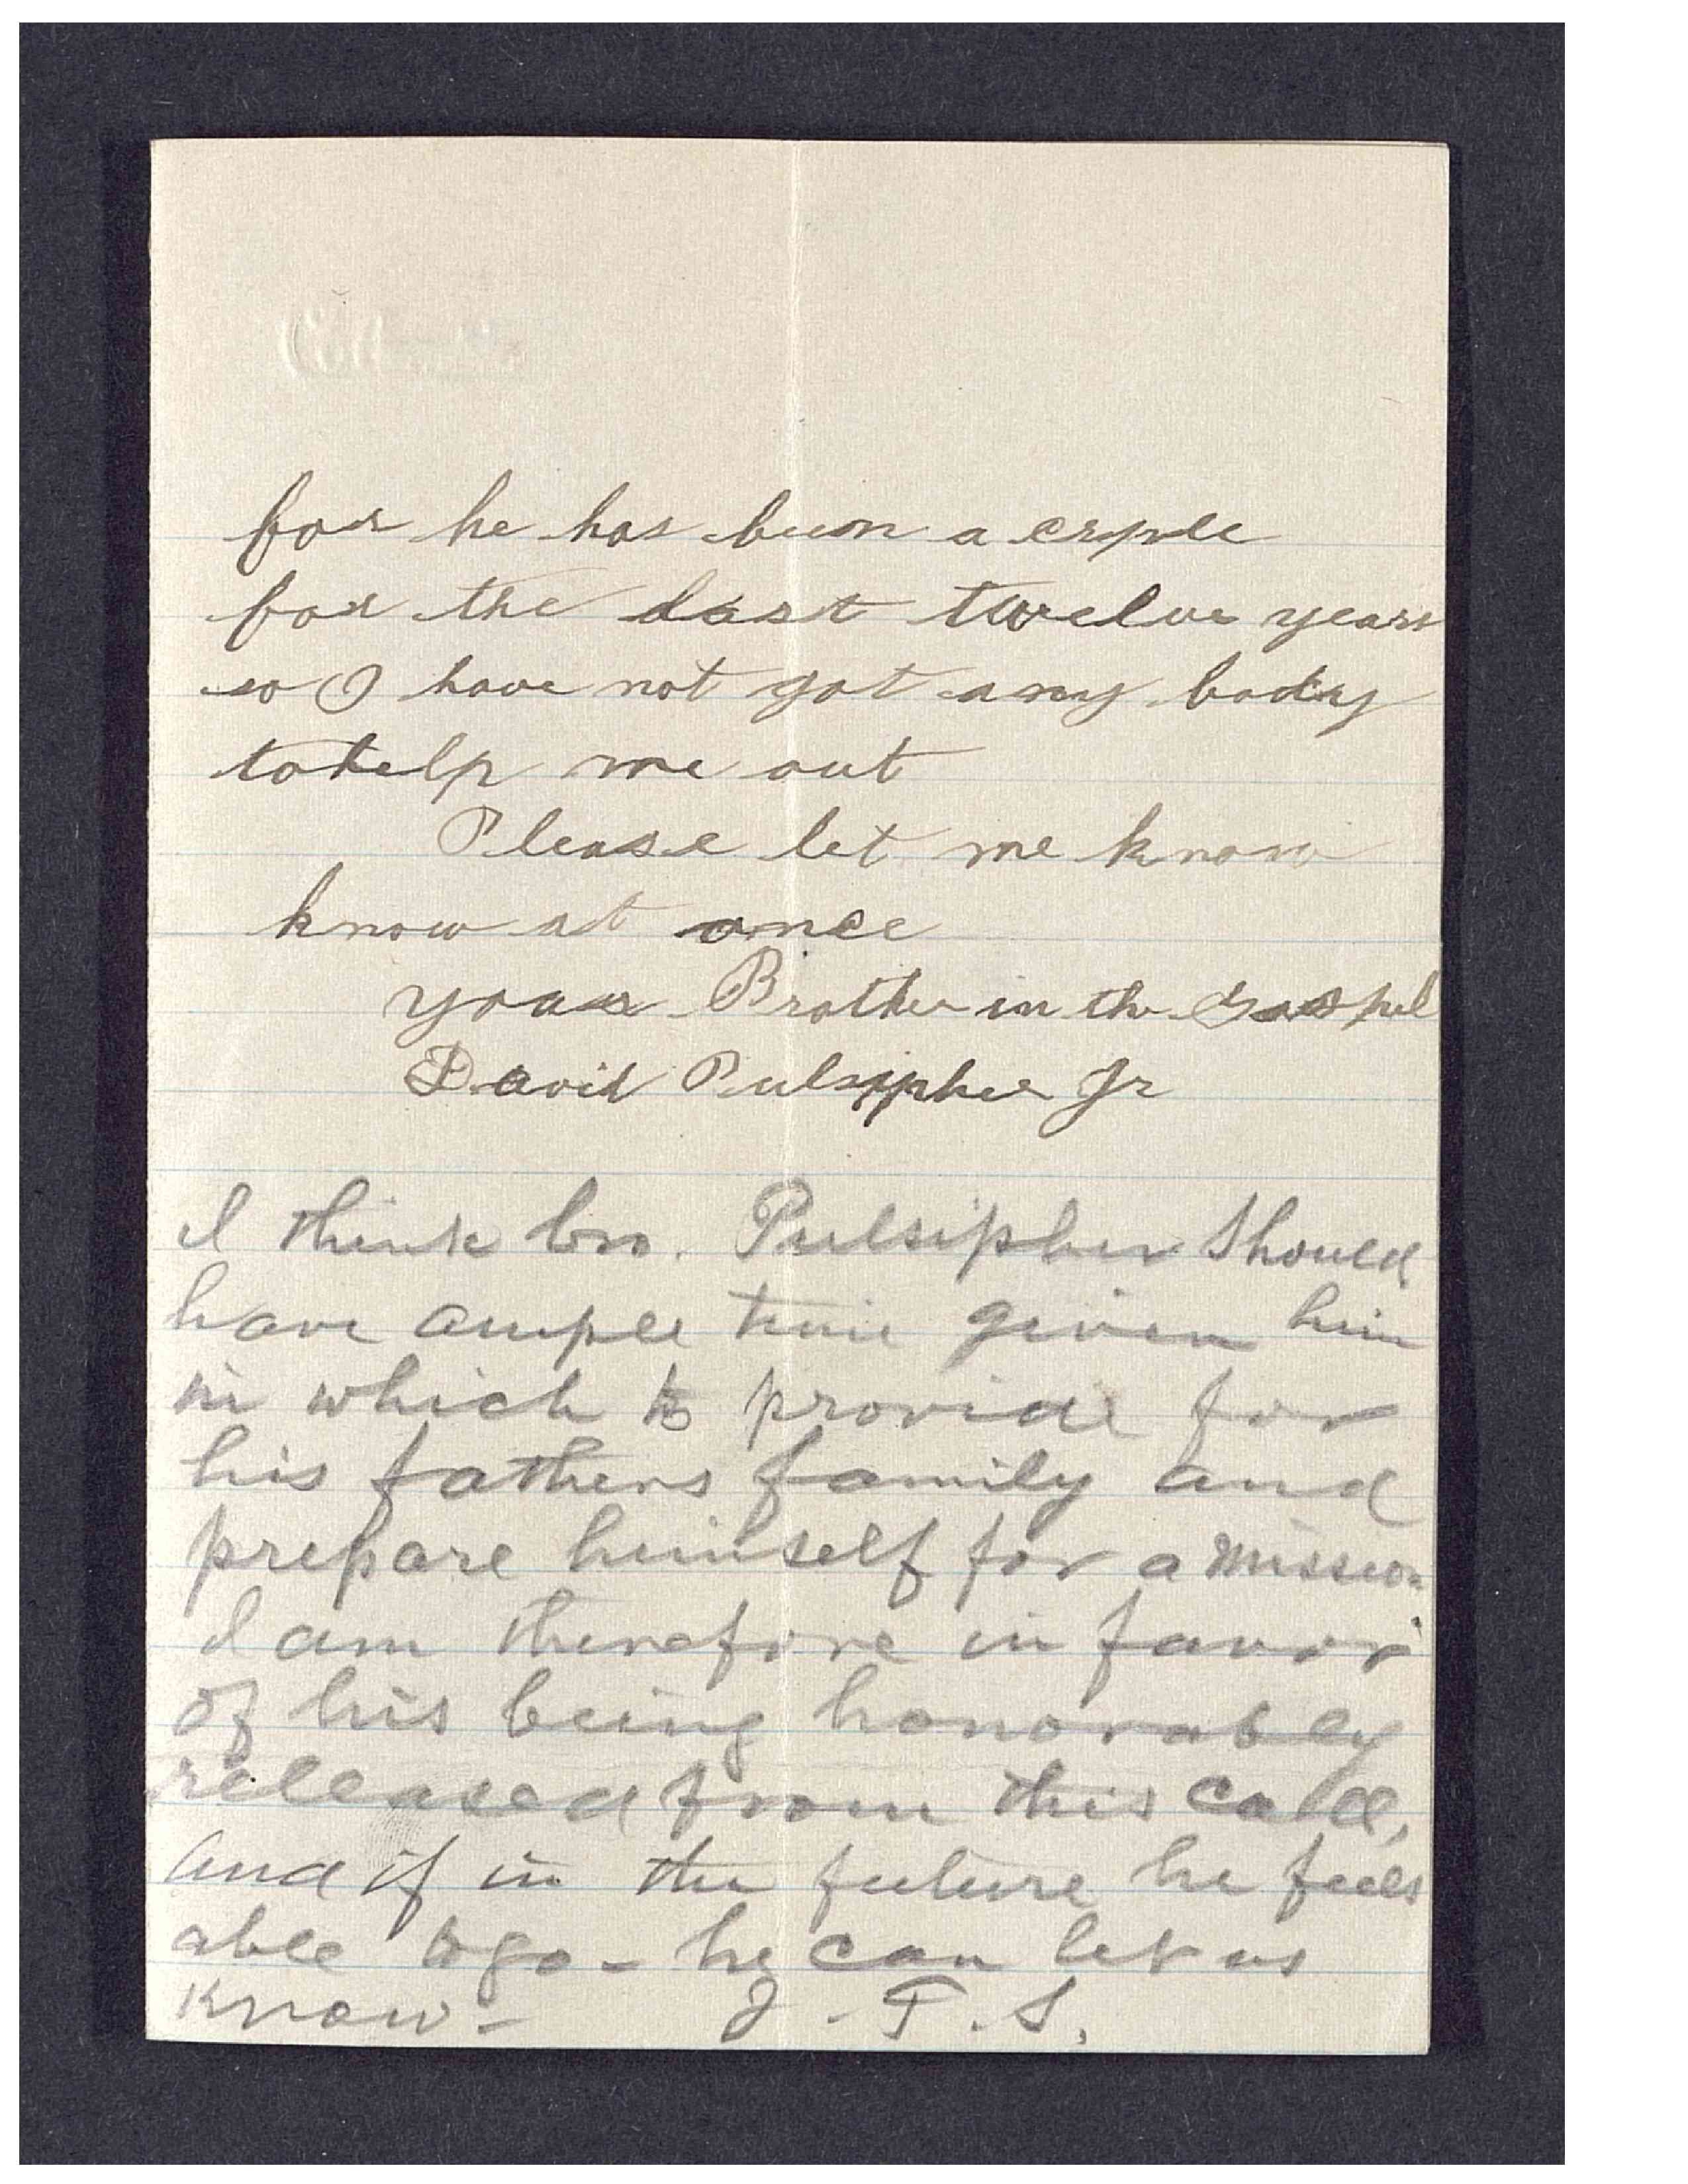 for he has been a criple
for the last twelve years
so I have not got any body
to help me out
Please let me know
know at once
your Brother in the Gospel
David Pulsipher Jr
I think bro. Pulsipher should
have ample time given him
in which to provide for
his fathers family and
prepare himself for a mission
I am therefore in favor
of his being honorably
released from this call,
and if in the future he feels
able to go - he can let us
know - J. F. S.